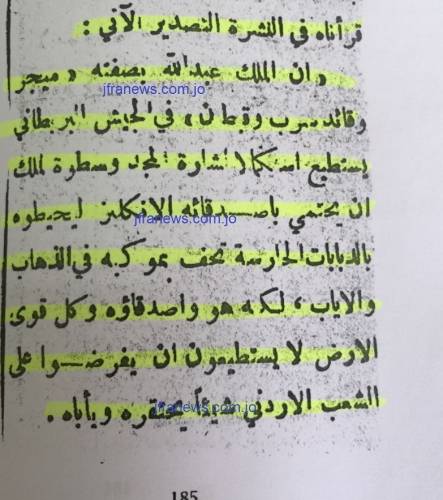 قرأناه في النشرة التصدير الآتي :
« ان الملك عبدالله بصفته « ميجر
jfranews.com.jo
وقائد سرب وقبطان » في الجيش البريطاني
يستطيع استكمالا لشارة المجد وسطوة الملك
ان يحتمي باصـدقائه الانكليز ليحيطوه
jfranews.com.jo
بالدبابات الحارسة تحف بموكبه في الذهاب
والاياب ، لكنه هو واصدقاؤه وكل قوى
الارض لا يستطيعون ان يفرضـوا على
الشعب الاردني شيئاً يحتقره ويأباه .
jfranews.com.jo
185